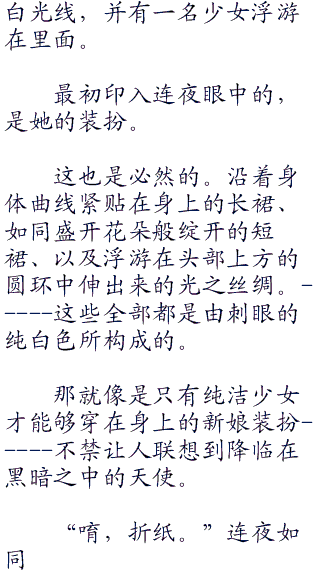 白光线，并有一名少女浮游
在里面。
最初印入连夜眼中的，
是她的装扮。
这也是必然的。沿着身
体曲线紧贴在身上的长裙、
如同盛开花朵般绽开的短
裙、以及浮游在头部上方的
圆环中伸出来的光之丝绸。-
----这些全部都是由刺眼的
纯白色所构成的。
那就像是只有纯洁少女
才能够穿在身上的新娘装扮-
----不禁让人联想到降临在
黑暗之中的天使。
“唷，折纸。”连夜如
同